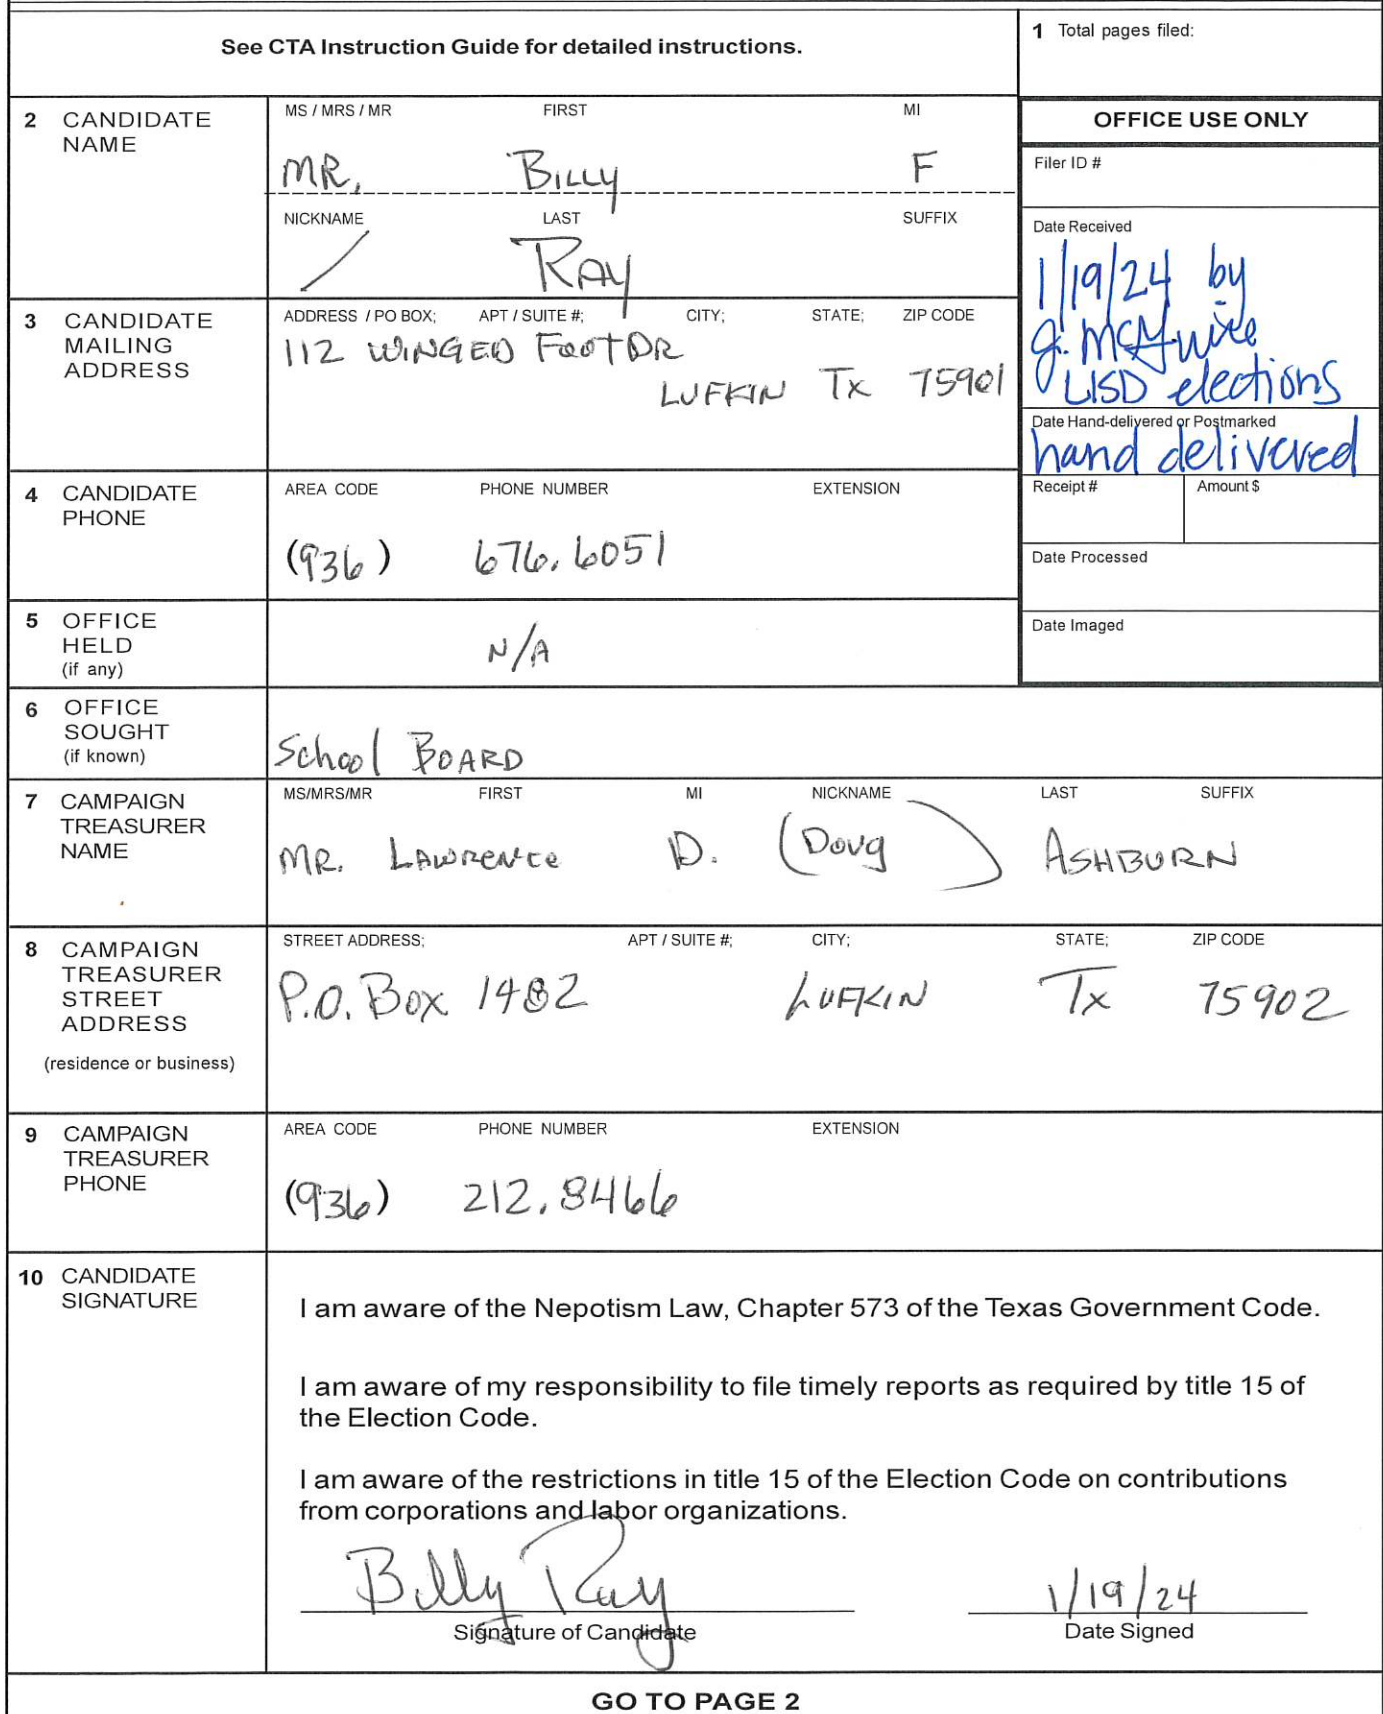 See CTA Instruction Guide for detailed instructions.
1 Total pages filed:
2 CANDIDATE NAME
MS / MRS / MR FIRST MI
MR. BILLY F
NICKNAME LAST SUFFIX
/ RAY
OFFICE USE ONLY
Filer ID #
Date Received
1/19/24 by
g. McGuire
LISD elections
Date Hand-delivered or Postmarked
hand delivered
Receipt # Amount $
Date Processed
Date Imaged
3 CANDIDATE MAILING ADDRESS
ADDRESS / PO BOX; APT / SUITE #; CITY; STATE; ZIP CODE
112 WINGED FOOT DR
LUFKIN TX 75901
4 CANDIDATE PHONE
AREA CODE PHONE NUMBER EXTENSION
(936) 676.6051
5 OFFICE HELD (if any)
N/A
6 OFFICE SOUGHT (if known)
School BOARD
7 CAMPAIGN TREASURER NAME
MS/MRS/MR FIRST MI NICKNAME LAST SUFFIX
MR. LAWRENCE D. (Doug) ASHBURN
8 CAMPAIGN TREASURER STREET ADDRESS
(residence or business)
STREET ADDRESS; APT / SUITE #; CITY; STATE; ZIP CODE
P.O. Box 1482 LUFKIN Tx 75902
9 CAMPAIGN TREASURER PHONE
AREA CODE PHONE NUMBER EXTENSION
(936) 212.8466
10 CANDIDATE SIGNATURE
I am aware of the Nepotism Law, Chapter 573 of the Texas Government Code.
I am aware of my responsibility to file timely reports as required by title 15 of
the Election Code.
I am aware of the restrictions in title 15 of the Election Code on contributions
from corporations and labor organizations.
Billy Ray 1/19/24
Signature of Candidate Date Signed
GO TO PAGE 2